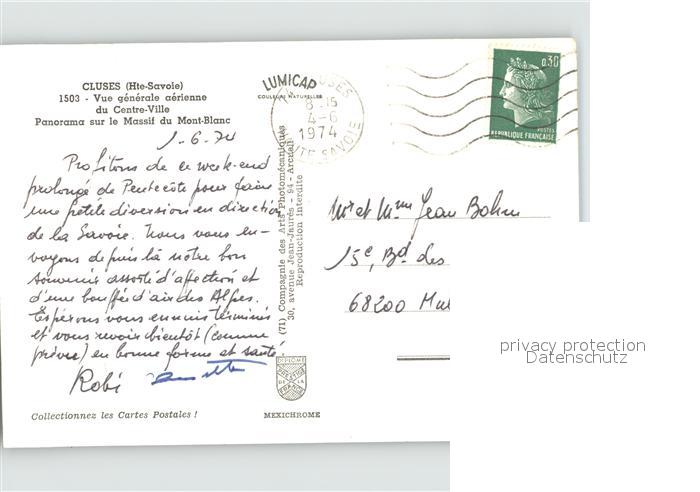 CLUSES (Hte-Savoie)
1503 - Vue générale aérienne
du Centre-Ville
Panorama sur le Massif du Mont-Blanc
LUMICAP
COULEURS NATURELLES
CLUSES
8-15
4-6
1974
HTE-SAVOIE
0,30
POSTES
REPUBLIQUE FRANÇAISE
1-6-74
Profitons de ce week-end
prolongé de Pentecôte pour faire
une petite diversion en direction
de la Savoie. Nous vous en-
voyons depuis là notre bon
souvenir assorti d'affection et
d'une bouffée d'air des Alpes.
Espérons vous
et vous revoir bientôt (comme
prévu) en bonne forme et santé.
Robi
(71) Compagnie des Arts Photomécaniques
30, avenue Jean-Jaurès - 94 - Arcueil
Reproduction Interdite
Mr et Mme Jean Bohn
15e, Bd des
68200 Mul
privacy protection
Datenschutz
DIPLOME
PRESTIGE
DE LA
FRANCE
Collectionnez les Cartes Postales !
MEXICHROME